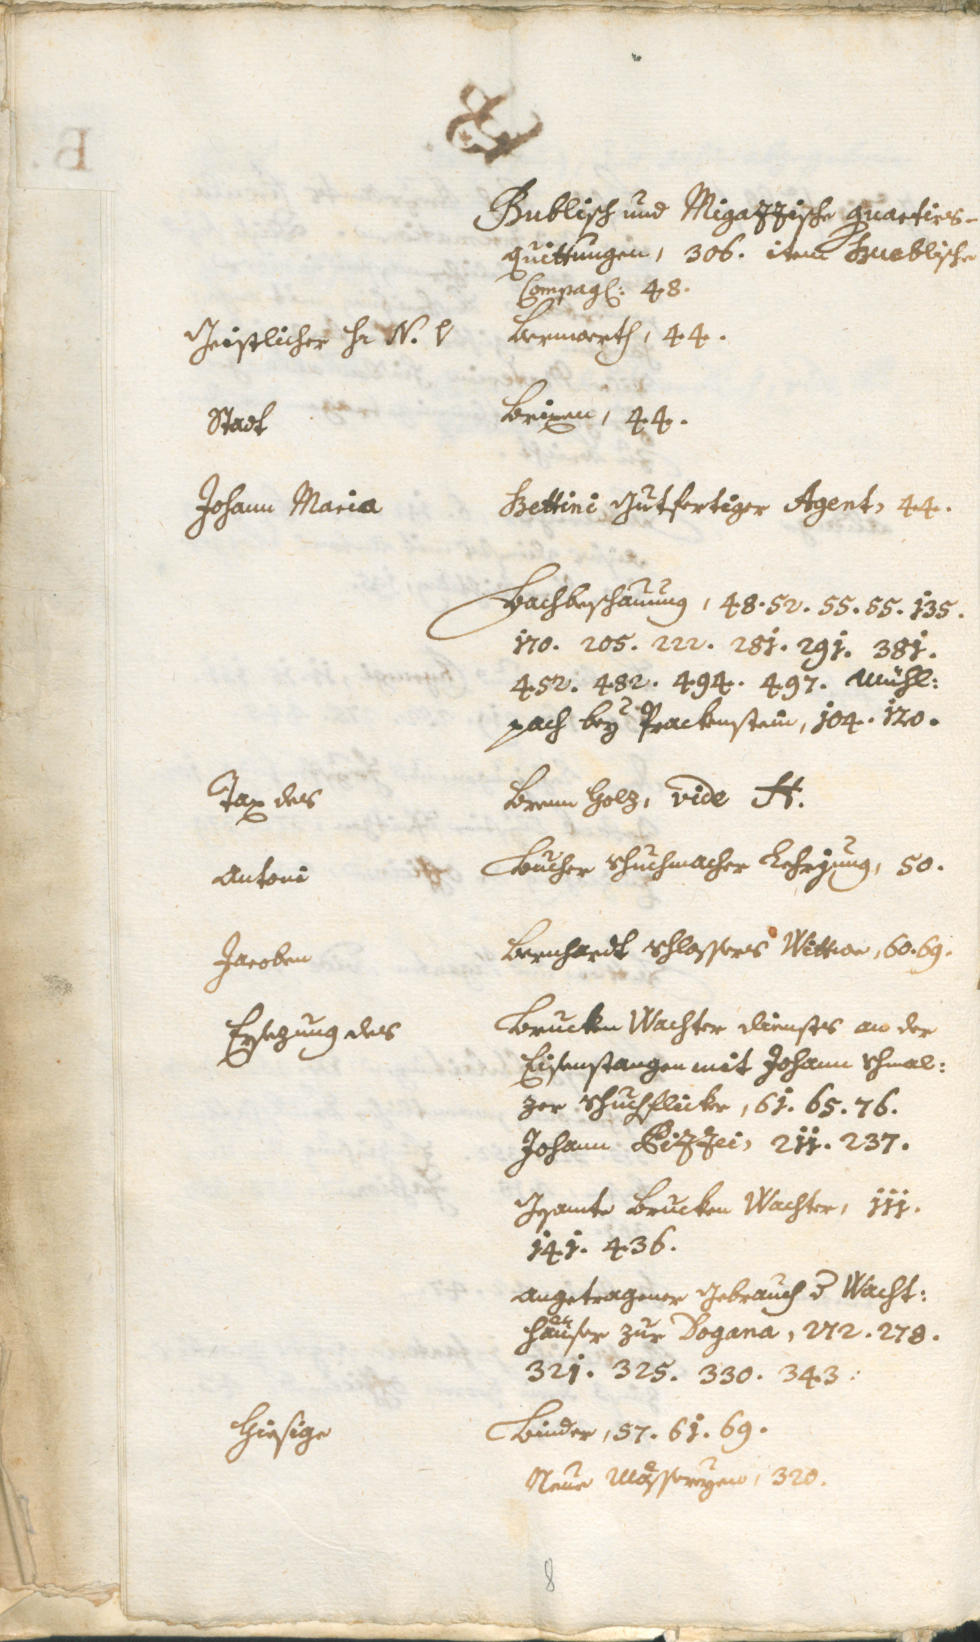 B.
Bublisch und Migazzische quartirs-
quittungen, 306. item Bueblische
Compagl: 48.
Geistlicher Hr N. V Bermerth, 44.
Stadt Brixen, 44.
Johann Maria Bettini Gutfertiger Agent, 44.
Bachbeschauung, 48. 52. 55. 55. 135.
170. 205. 222. 281. 291. 381.
452. 482. 494. 497. Mühl:
pach bey Prackenstein, 104. 120.
Tax des Brenn Holz, vide H.
Antoni Bucher Schuchmacher Lehrjung, 50.
Jacoben Bernhardt Schlossers Wittwe, 60. 69.
Ersezung des Brucken Wachter Diensts an der
Eisenstangen mit Johann Schmal:
zer Schuchflicker, 61. 65. 76.
Johann Pizzei, 211. 237.
Gesamte Brucken Wachter, 111.
141. 436.
angetragener Gebrauch d Wacht:
häuser zur Dogana, 272. 278.
321. 325. 330. 343.
Hiesige Binder, 57. 61. 69.
Neue Messereyen, 320.
8